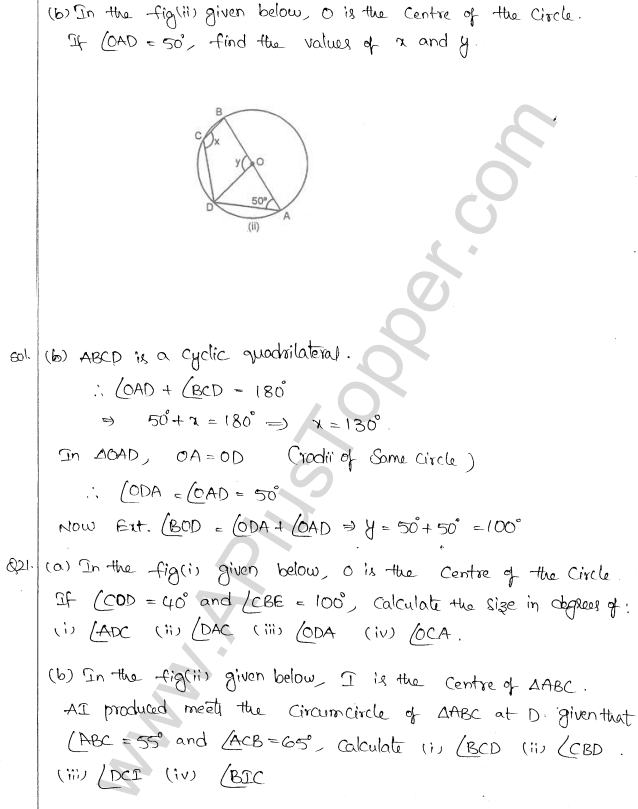 (b) In the fig(ii) given below, O is the Centre of the Circle.
If ∠OAD = 50°, find the values of x and y.
B
C
x
y
O
50°
D
A
(ii)
Sol. (b) ABCD is a Cyclic quadrilateral.
∴ ∠OAD + ∠BCD = 180°
⇒ 50° + x = 180° ⇒ x = 130°
In ΔOAD, OA = OD (radii of Same circle)
∴ ∠ODA = ∠OAD = 50°
Now Ext. ∠BOD = ∠ODA + ∠OAD ⇒ y = 50° + 50° = 100°
Q21. (a) In the fig(i) given below, O is the Centre of the Circle
If ∠COD = 40° and ∠CBE = 100°, Calculate the Size in degrees of :
(i) ∠ADC (ii) ∠DAC (iii) ∠ODA (iv) ∠OCA.
(b) In the fig(ii) given below, I is the Centre of ΔABC.
AI produced meets the Circumcircle of ΔABC at D. given that
∠ABC = 55° and ∠ACB = 65°, Calculate (i) ∠BCD (ii) ∠CBD
(iii) ∠DCI (iv) ∠BIC
www.APlusTopper.com